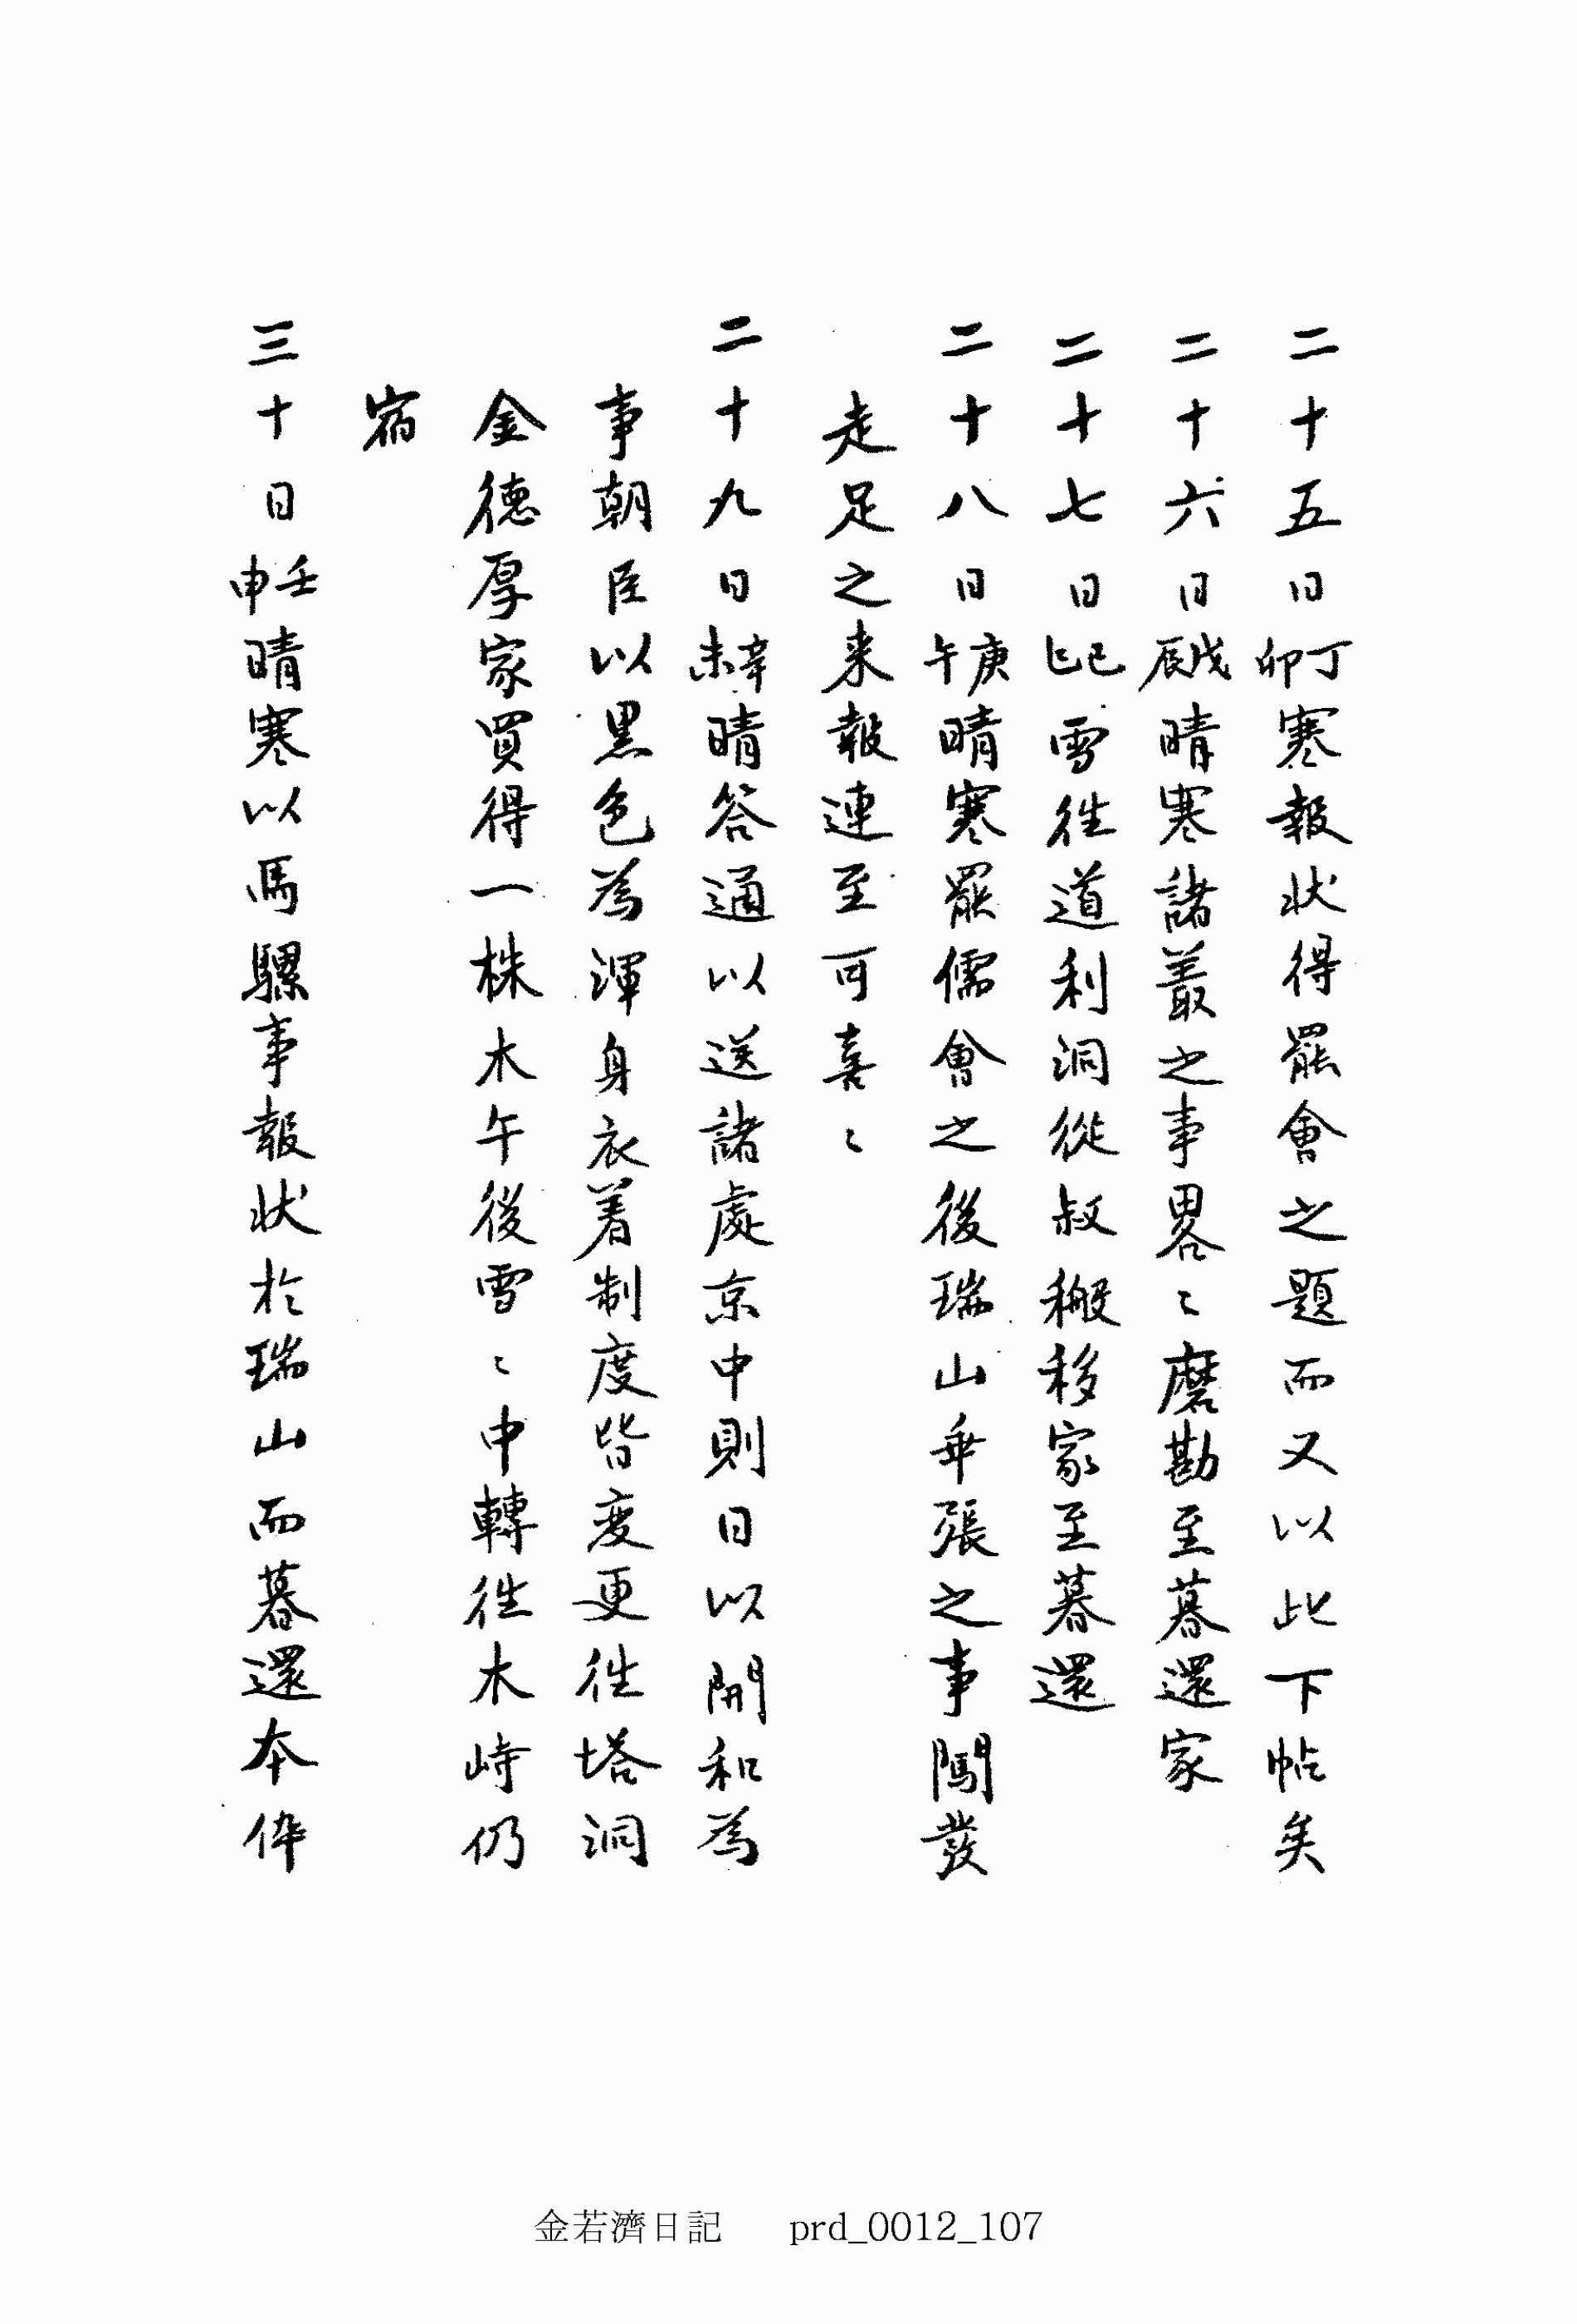 二十五日丁卯寒報狀得罷會之題而又以此下帖矣
二十六日戊辰晴寒諸叢之事畧〻磨勘至暮還家
二十七日己巳雪徃道利洞從叔搬移家至暮還
二十八日庚午晴寒罷儒會之後瑞山乖張之事闖發
走足之来報連至可喜〻
二十九日辛未晴答通以送諸處京中則日以開和為
事朝臣以黒色為渾身衣着制度皆変更徃塔洞
金德厚家買得一株木午後雪〻中轉徃木峙仍
宿
三十日壬申晴寒以馬騾事報狀於瑞山而暮還本倅
金若濟日記 prd_0012_107